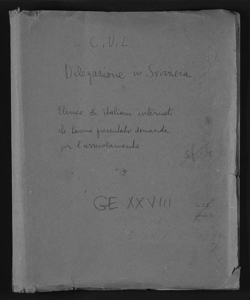 C. V. L
Delegazione in Svizzera
Elenco di italiani internati
che hanno presentato domanda
per l'arruolamento
GE XXVIII